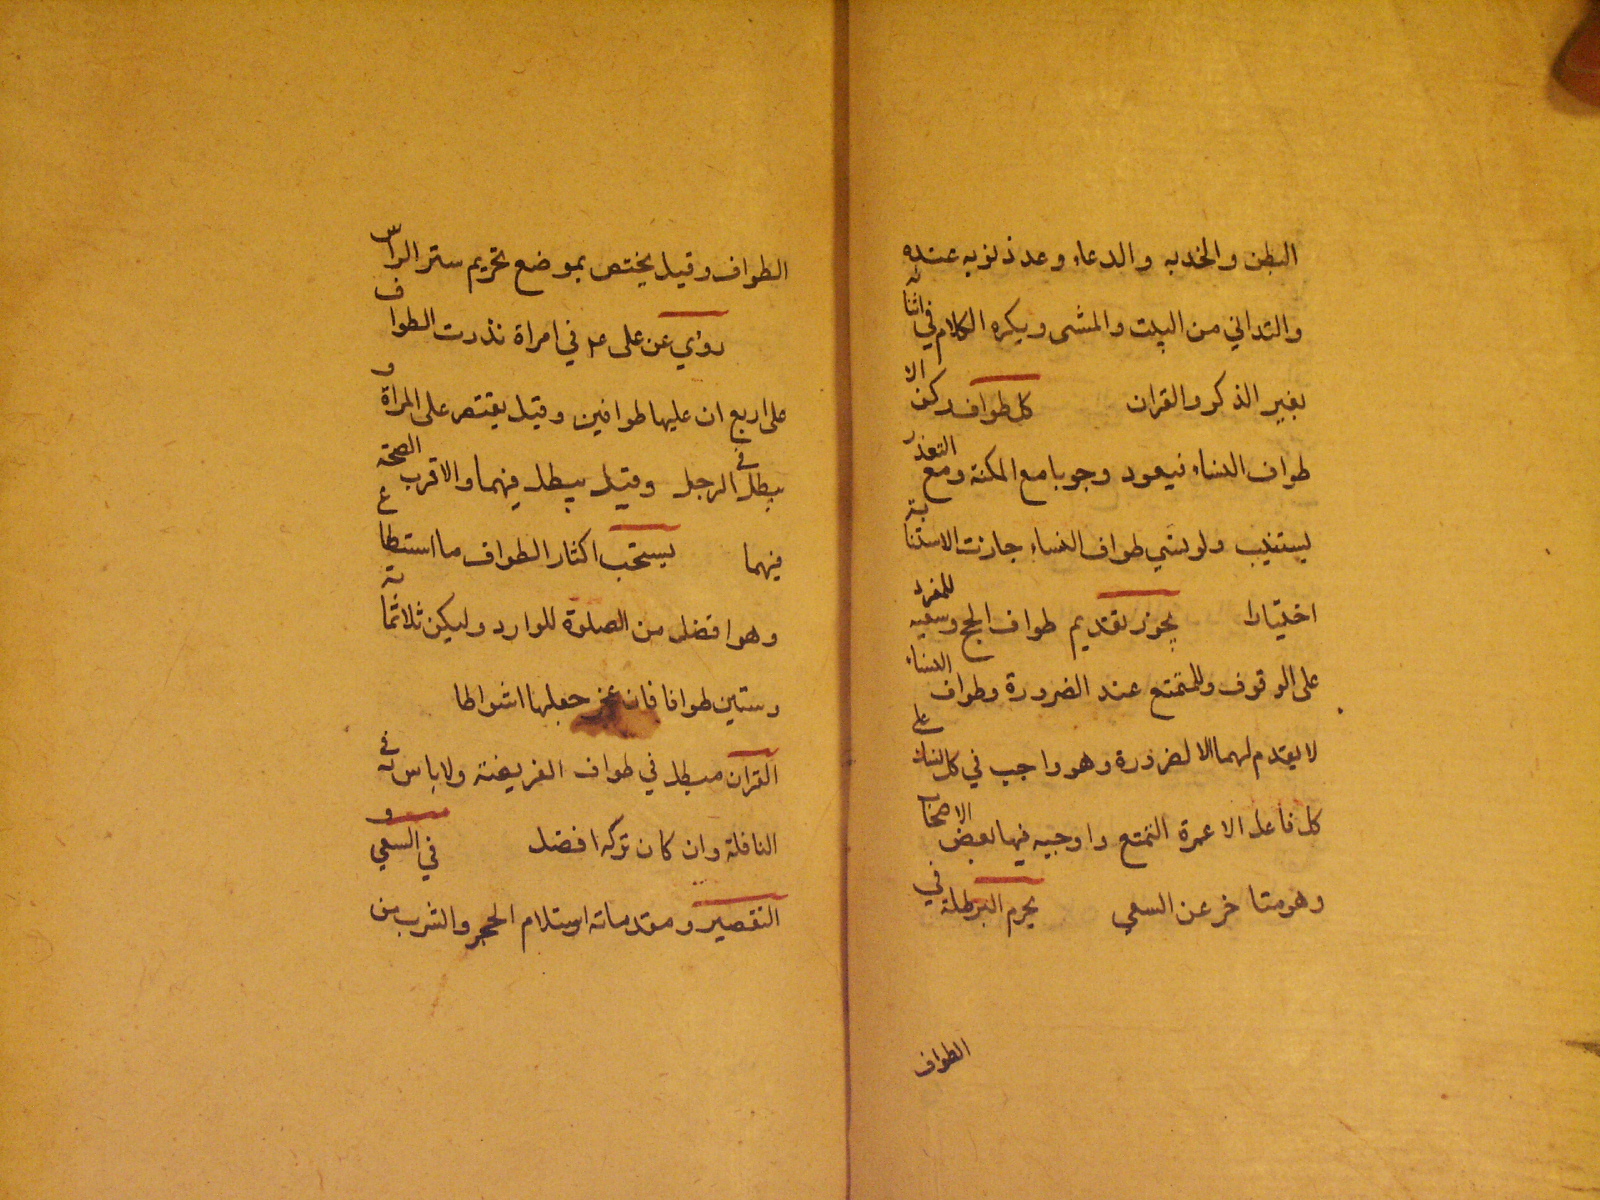 البطن والخد به والدعاء وعد ذنوبه عنده
والتداني من البيت والمشى ويكره الكلام في اثنائه
بغير الذكر والقران كل طواف ركن الا
طواف النساء فيعود وجوبا مع المكنة ومع التعذر
يستنيب ولو نسي طواف النساء جازت الاستنابة
اختيارا يجوز تقديم طواف الحج وسعيه للمفرد
على الوقوف وللمتمتع عند الضرورة وطواف النساء
لا يقدم لهما الا لضرورة وهو واجب في كل نسك على
كل فاعل الا عمرة التمتع واوجبه فيها بعض الاصحاب
وهو متاخر عن السعي يحرم البرطلة في
الطواف
الطواف وقيل يختص بموضع تحريم ستر الراس
روي عن على ع في امراة نذرت الطواف
على اربع ان عليها طوافين وقيل يقتصر على المراة و
يبطل في الرجل وقيل يبطل فيهما والاقرب الصحة
فيهما يستحب اكثار الطواف ما استطاع
وهو افضل من الصلوة للوارد وليكن ثلاثمائة
وستين طوافا فان عجز جعلها اشواطا
القران مبطل في طواف الفريضة ولا باس به في
النافلة وان كان تركه افضل في السعي و
التقصير ومقدماته استلام الحجر والشرب من